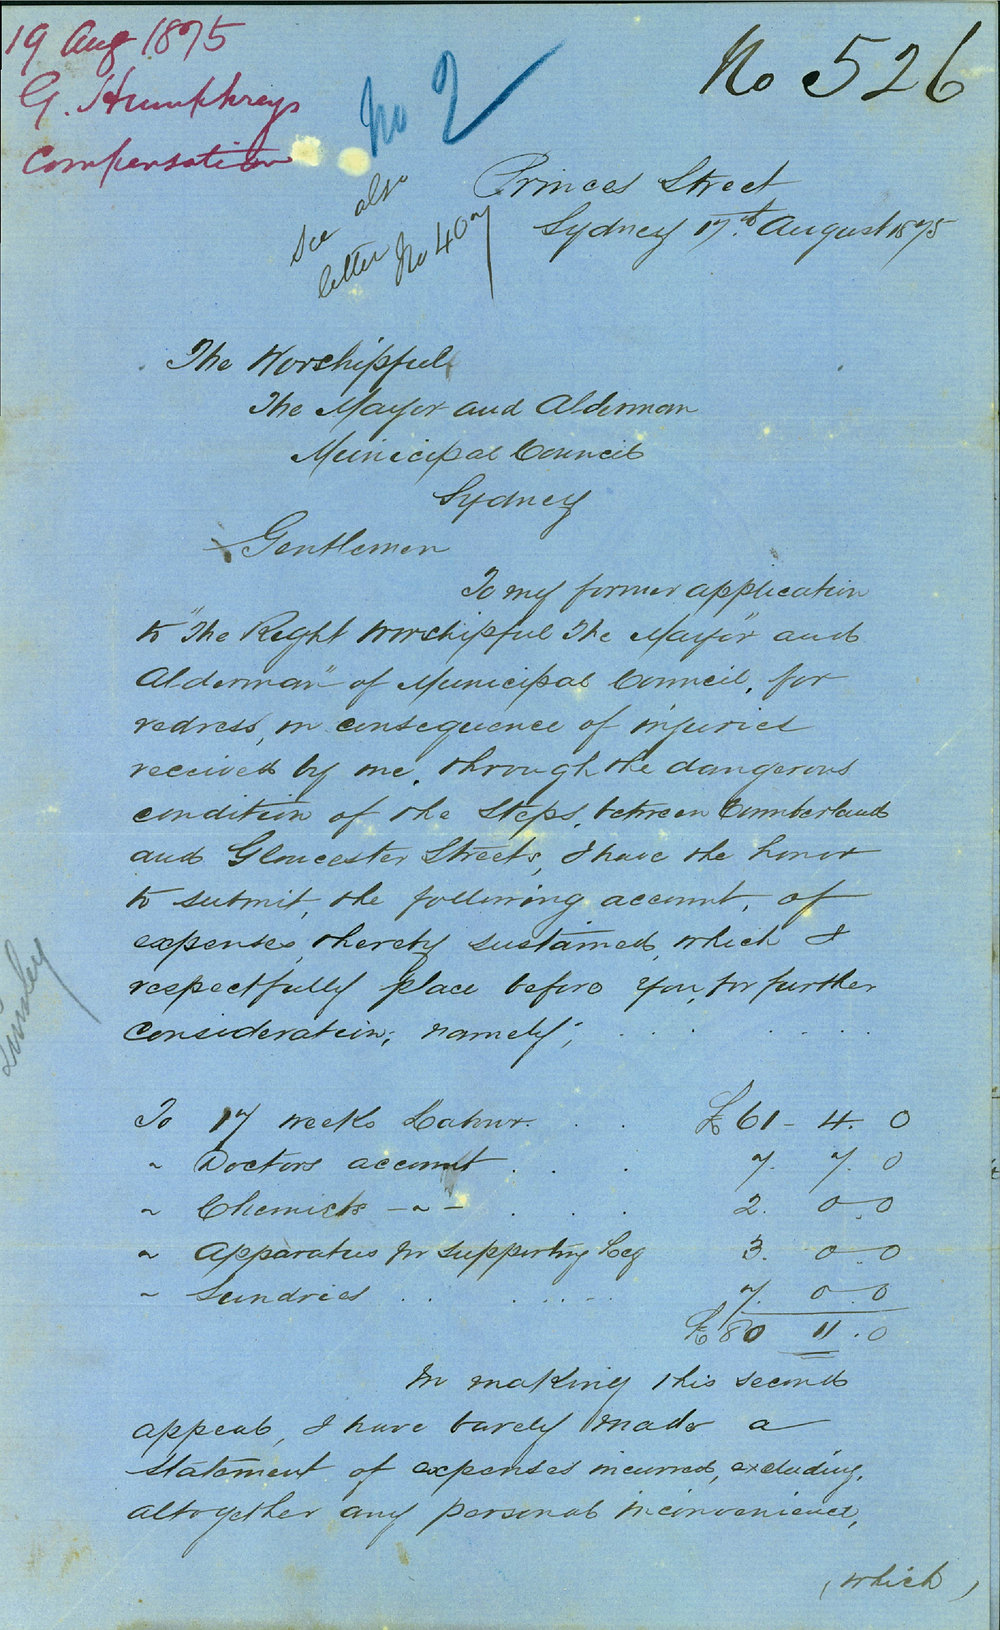 19 Aug 1875
G. Humphreys
Compensation
No 2
No 526
See also
letter No 407
Princes Street
Sydney 17th August 1875
The Worshipful
The Mayor and Alderman
Municipal Council
Sydney
Gentlemen
To my former application
to "The Right Worshipful The Mayor" and
Alderman" of Municipal Council, for
redress, in consequence of injuries
received by me, through the dangerous
condition of the Steps, between Cumberland
and Gloucester Streets, I have the honor
to submit, the following account, of
expenses, thereby sustained, which I
respectfully place before you, for further
consideration; namely; . . . . . .
To 17 weeks Labour. . . £61 - 4. 0
" Doctors account . . . 7. 7. 0
" Chemists - " - . . . 2. 0. 0
" Apparatus for supporting leg 3. 0. 0
" Sundries . . . . . . 7. 0. 0
£80 11. 0
In making this second
appeal, I have barely made a
statement of expenses incurred, excluding,
altogether any personal inconvenience,
(which)